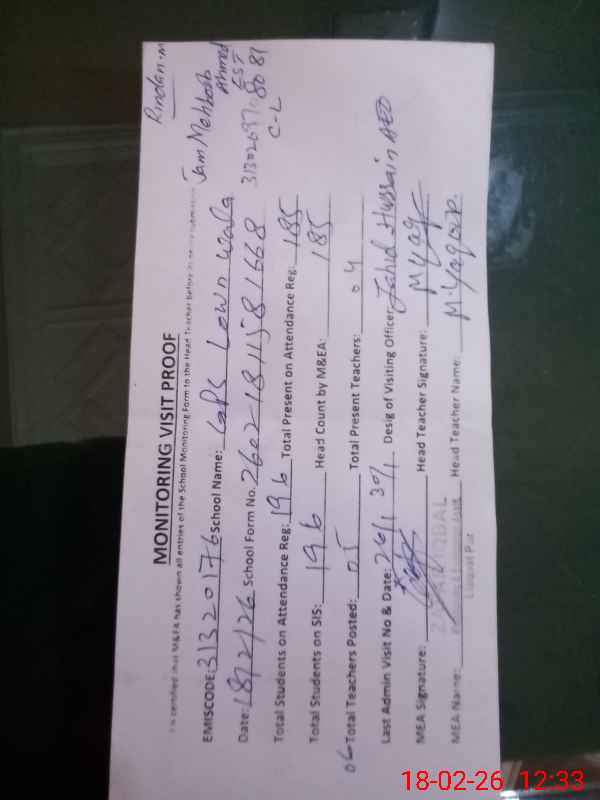 Rindan.m
MONITORING VISIT PROOF
It is certified that M&EA has shown all entries of the School Monitoring Form to the Head Teacher before submission
Jam Mehboob
Ahmed
EST
EMISCODE: 31320176 School Name: GPS Lown Wala
31302697-8081
C-L
Date: 18/2/26 School Form No. 2602-1811581668
Total Students on Attendance Reg: 196 Total Present on Attendance Reg: 185
Total Students on SIS: 196 Head Count by M&EA: 185
06 Total Teachers Posted: 05 Total Present Teachers: 04
Last Admin Visit No & Date: 26/1 Desig of Visiting Officer: Zahid Hussain AEO
MEA Signature: Head Teacher Signature: M Yaq
IQBAL
MEA Name: Head Teacher Name: M. Yaqoob
18-02-26 12:33